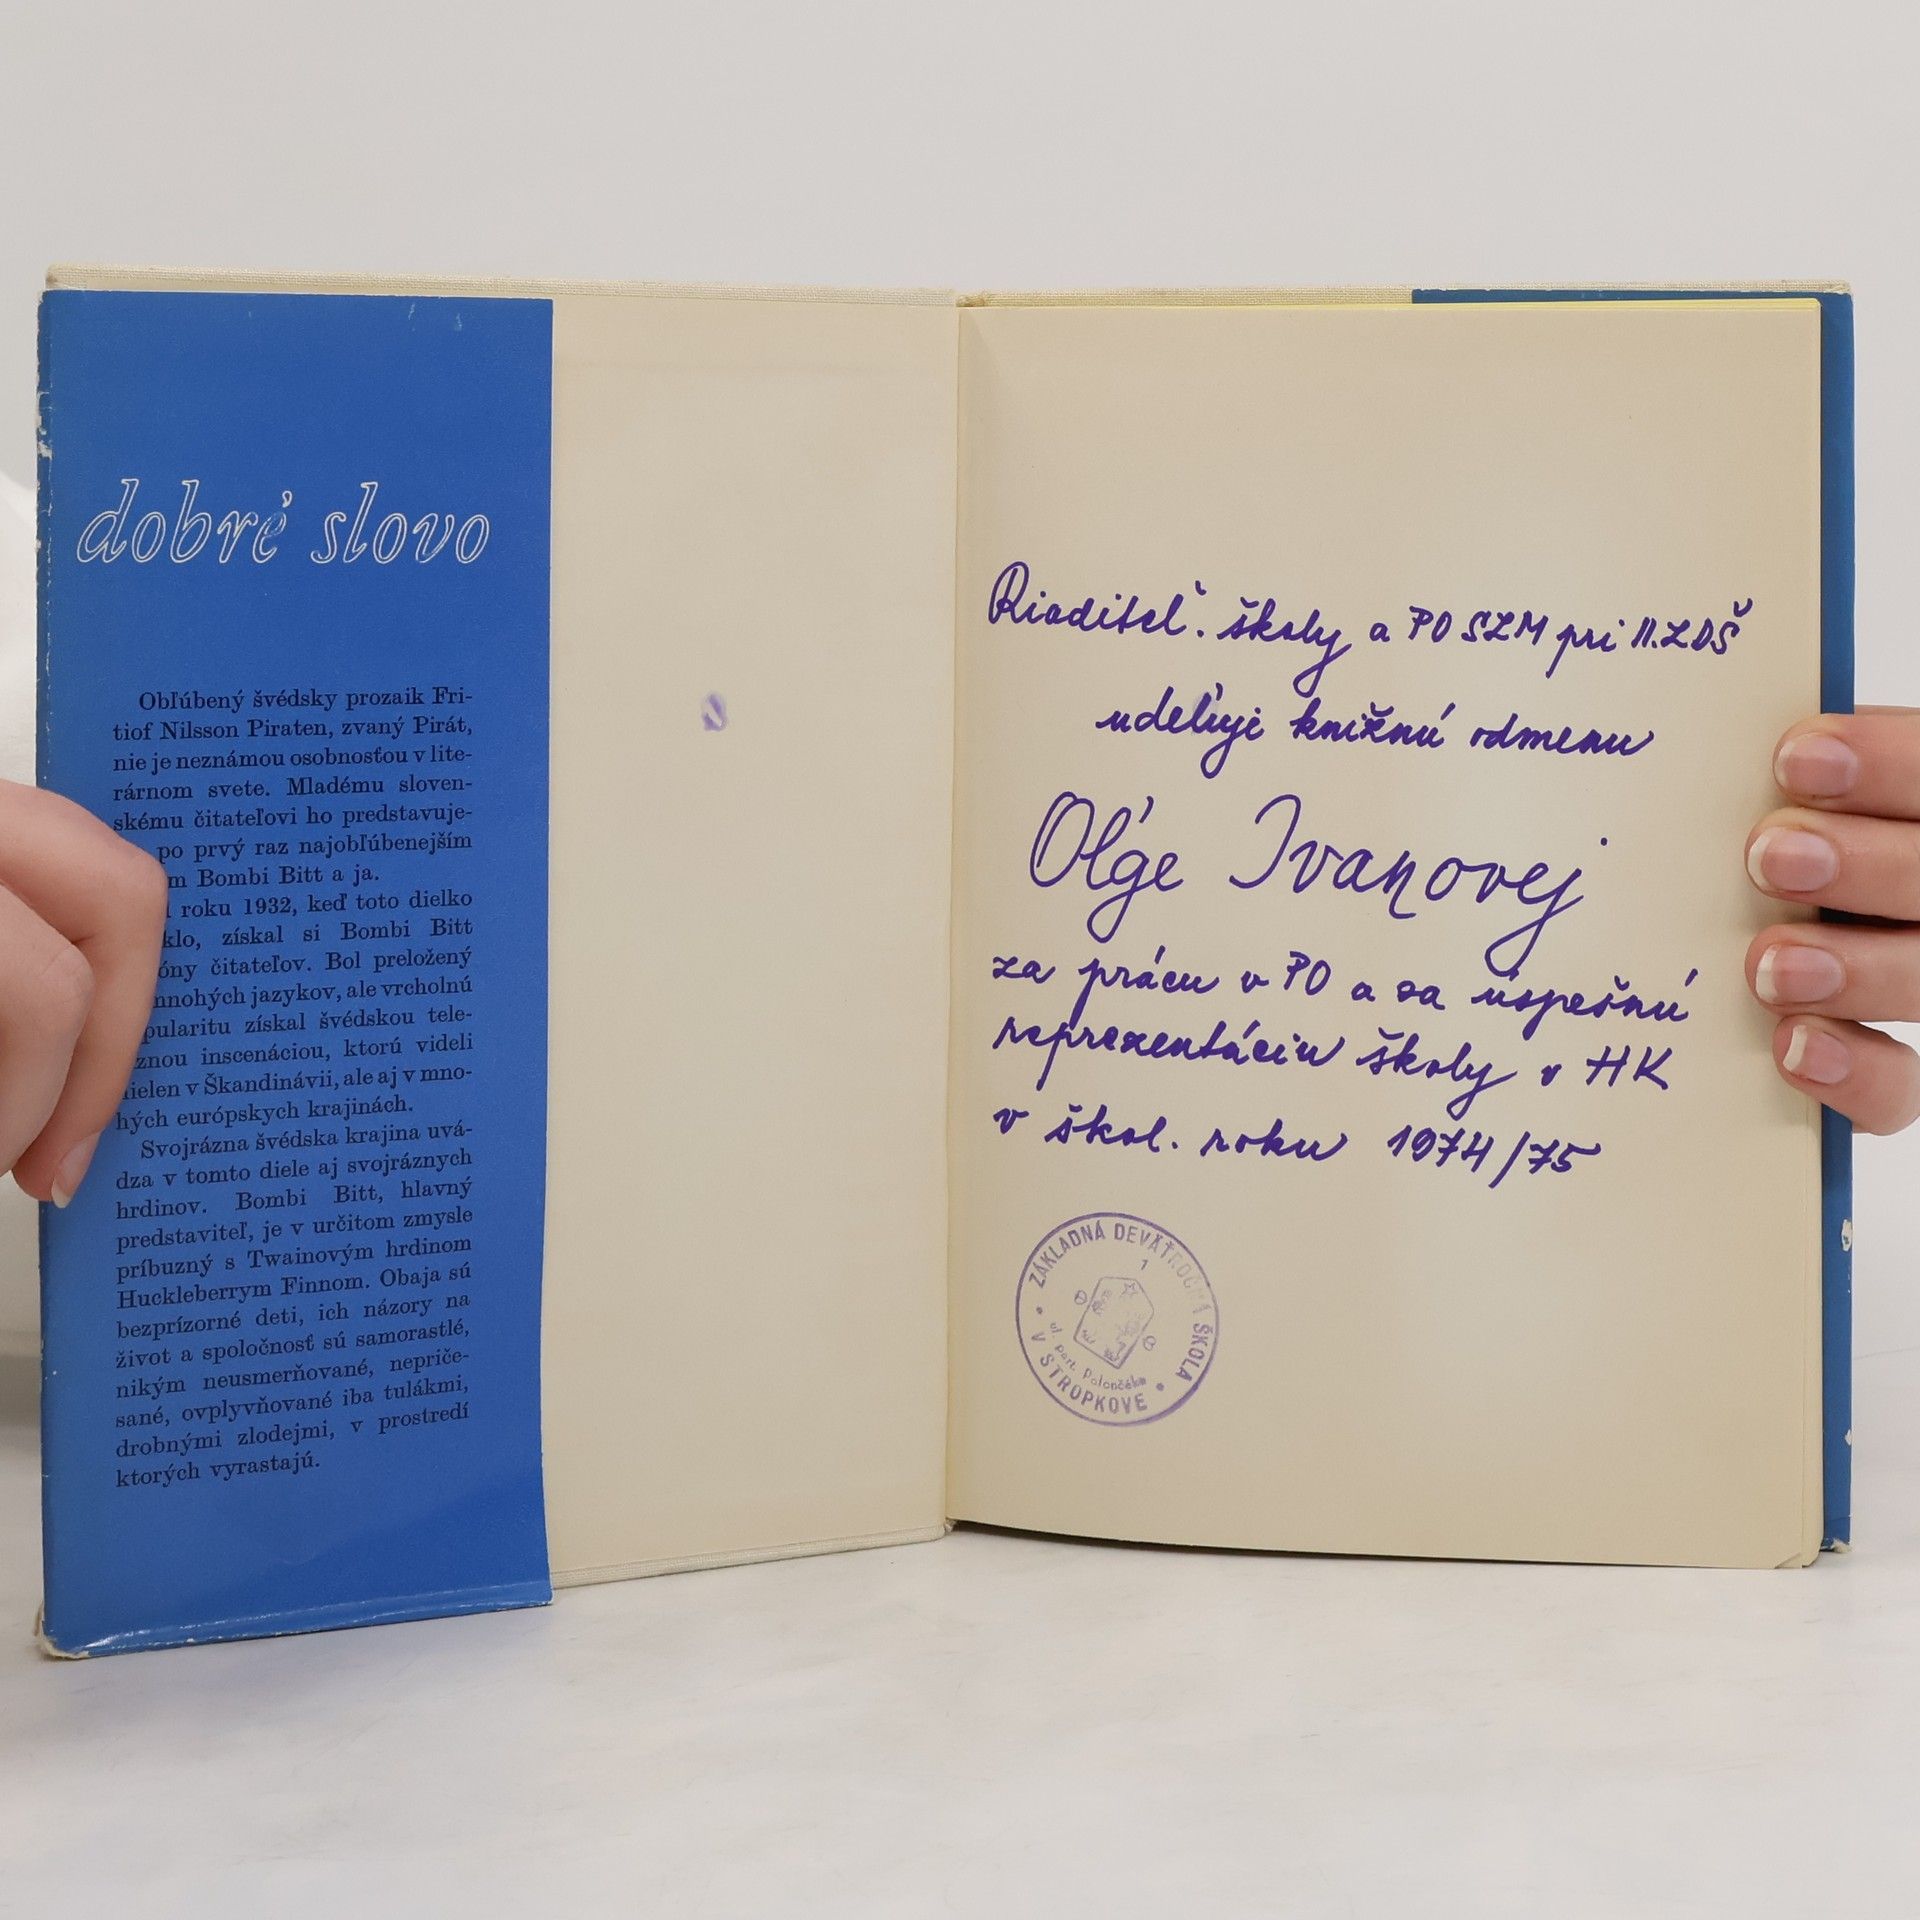 dobré slovo
Obľúbený švédsky prozaik Fri-
tiof Nilsson Piraten, zvaný Pirát,
nie je neznámou osobnosťou v lite-
rárnom svete. Mladému sloven-
skému čitateľovi ho predstavuje-
po prvý raz najobľúbenejším
m Bombi Bitt a ja.
roku 1932, keď toto dielko
klo, získal si Bombi Bitt
óny čitateľov. Bol preložený
mnohých jazykov, ale vrcholnú
pularitu získal švédskou tele-
znou inscenáciou, ktorú videli
ielen v Škandinávii, ale aj v mno-
hých európskych krajinách.
Svojrázna švédska krajina uvá-
dza v tomto diele aj svojráznych
hrdinov. Bombi Bitt, hlavný
predstaviteľ, je v určitom zmysle
príbuzný s Twainovým hrdinom
Huckleberrym Finnom. Obaja sú
bezprízorné deti, ich názory na
život a spoločnosť sú samorastlé,
nikým neusmerňované, nepriče-
sané, ovplyvňované iba tulákmi,
drobnými zlodejmi, v prostredí
ktorých vyrastajú.
Riaditeľ. školy a PO SZM pri II. ZDŠ
udeľuje knižnú odmenu
Oľge Ivanovej
za prácu v PO a za úspešnú
reprezentáciu školy v HK
v škol. roku 1974/75
ZÁKLADNÁ DEVÄŤROČNÁ ŠKOLA
1
ul. part. Polončéka
V STROPKOVE